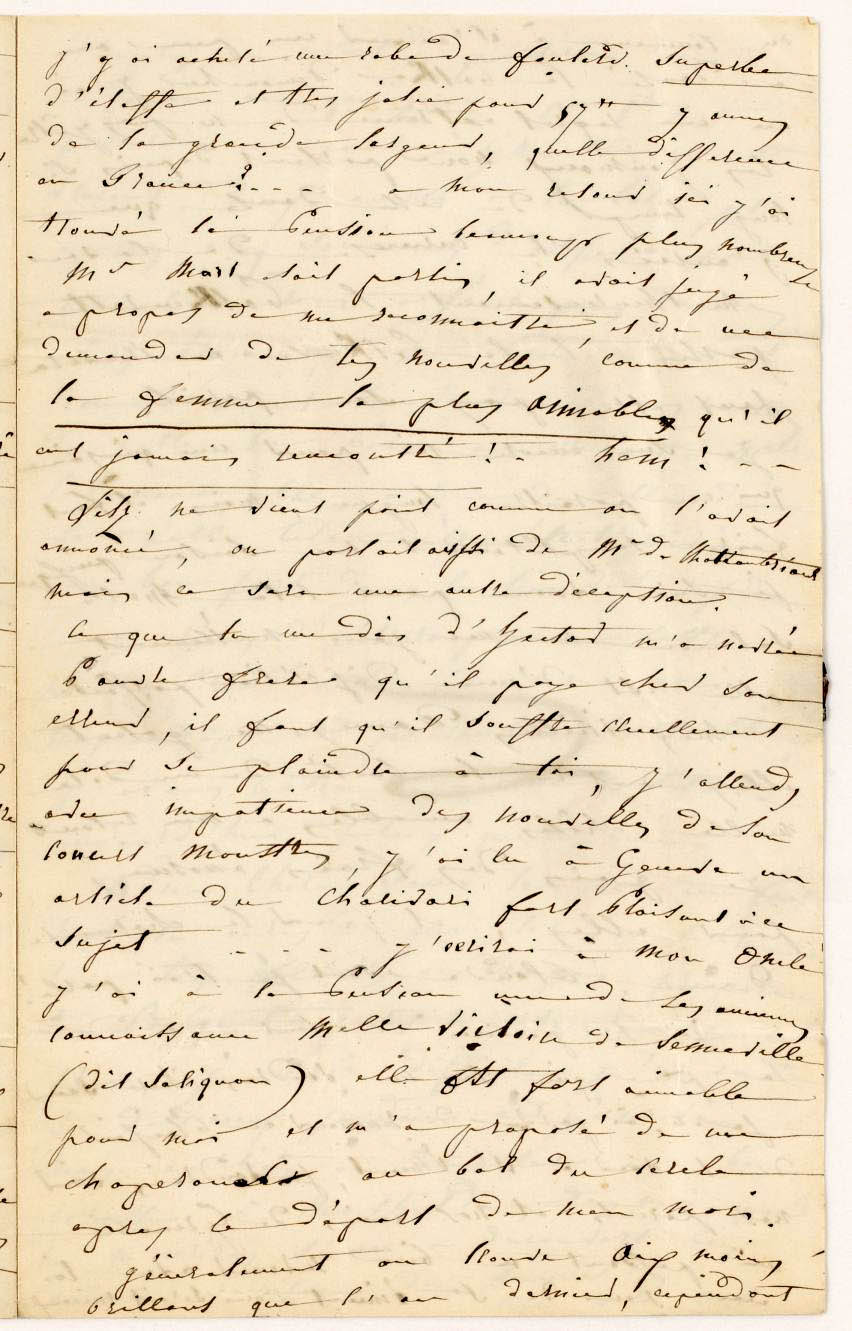 j'y ai acheté une robe de foulard superbe
d'étoffe et très jolie pour 57 ₶ 7 aunes
de la grande largeur, quelle différence
en France?... a mon retour ici j'ai
trouvé la Pension beaucoup plus nombreuse
Mr Mars était partis, il avait jugé
a propos de me reconnaître, et de me
demander de tes nouvelles comme de
la femme la plus aimable qu'il
eut jamais rencontré! - hem! - -
ne vient point comme on l'avait
annoncé, on parlait aussi de Mr de Chateaubriant
mais ce sera une autre déception.
Ce que tu me dis d'Hector m'a navrée
Pauvre frere qu'il paye cher son
erreur, il faut qu'il souffre cruellement
pour se plaindre à toi, j'attends
avec impatience des nouvelles de son
concert monstre, j'ai lu à Geneve un
article du Charivari fort Plaisant à ce
sujet - - - j'écrirai à mon oncle
j'ai à la Pension une de ses anciennes
connaissance Melle Victoire de
(dit Saliquon) elle est fort aimable
pour moi et m'a proposé de me
chaperoner au bal du Cercle
apres le départ de mon mari.
généralement on trouve Aix moins
brillant que l'an dernier, cependant